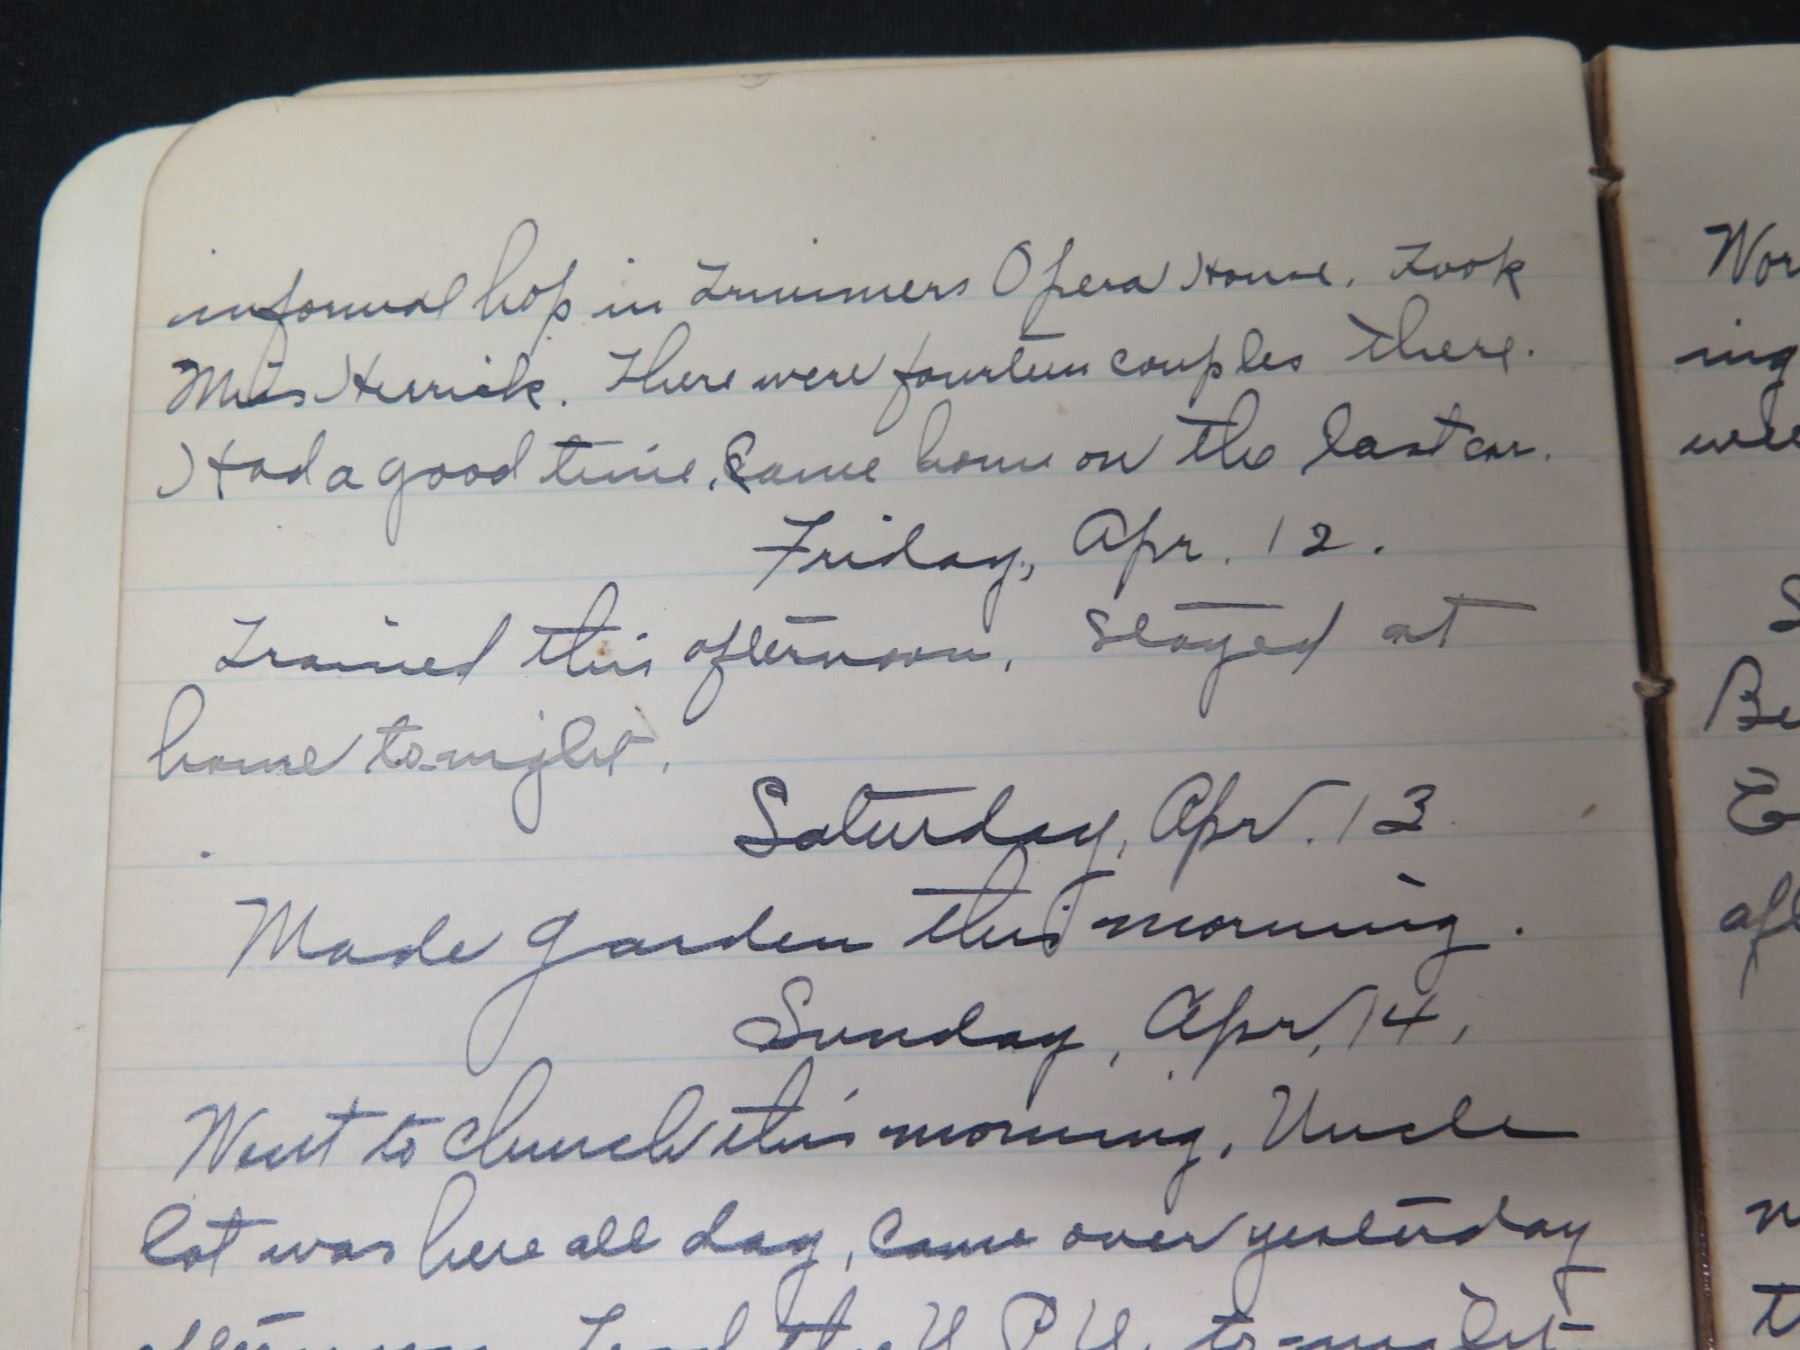 informal hop in Trimmers Opera House. Took
Miss Herrick. There were fourteen couples there.
Had a good time. Came home on the last car.
Friday, Apr. 12.
Trained this afternoon. Stayed at
home to-night.
Saturday, Apr. 13
Made garden this morning.
Sunday, Apr. 14,
Went to church this morning. Uncle
Lot was here all day, came over yesterday
afternoon. Lead the Y.P.U. to-night
Wor
ing
wee
S
Be
E
aft